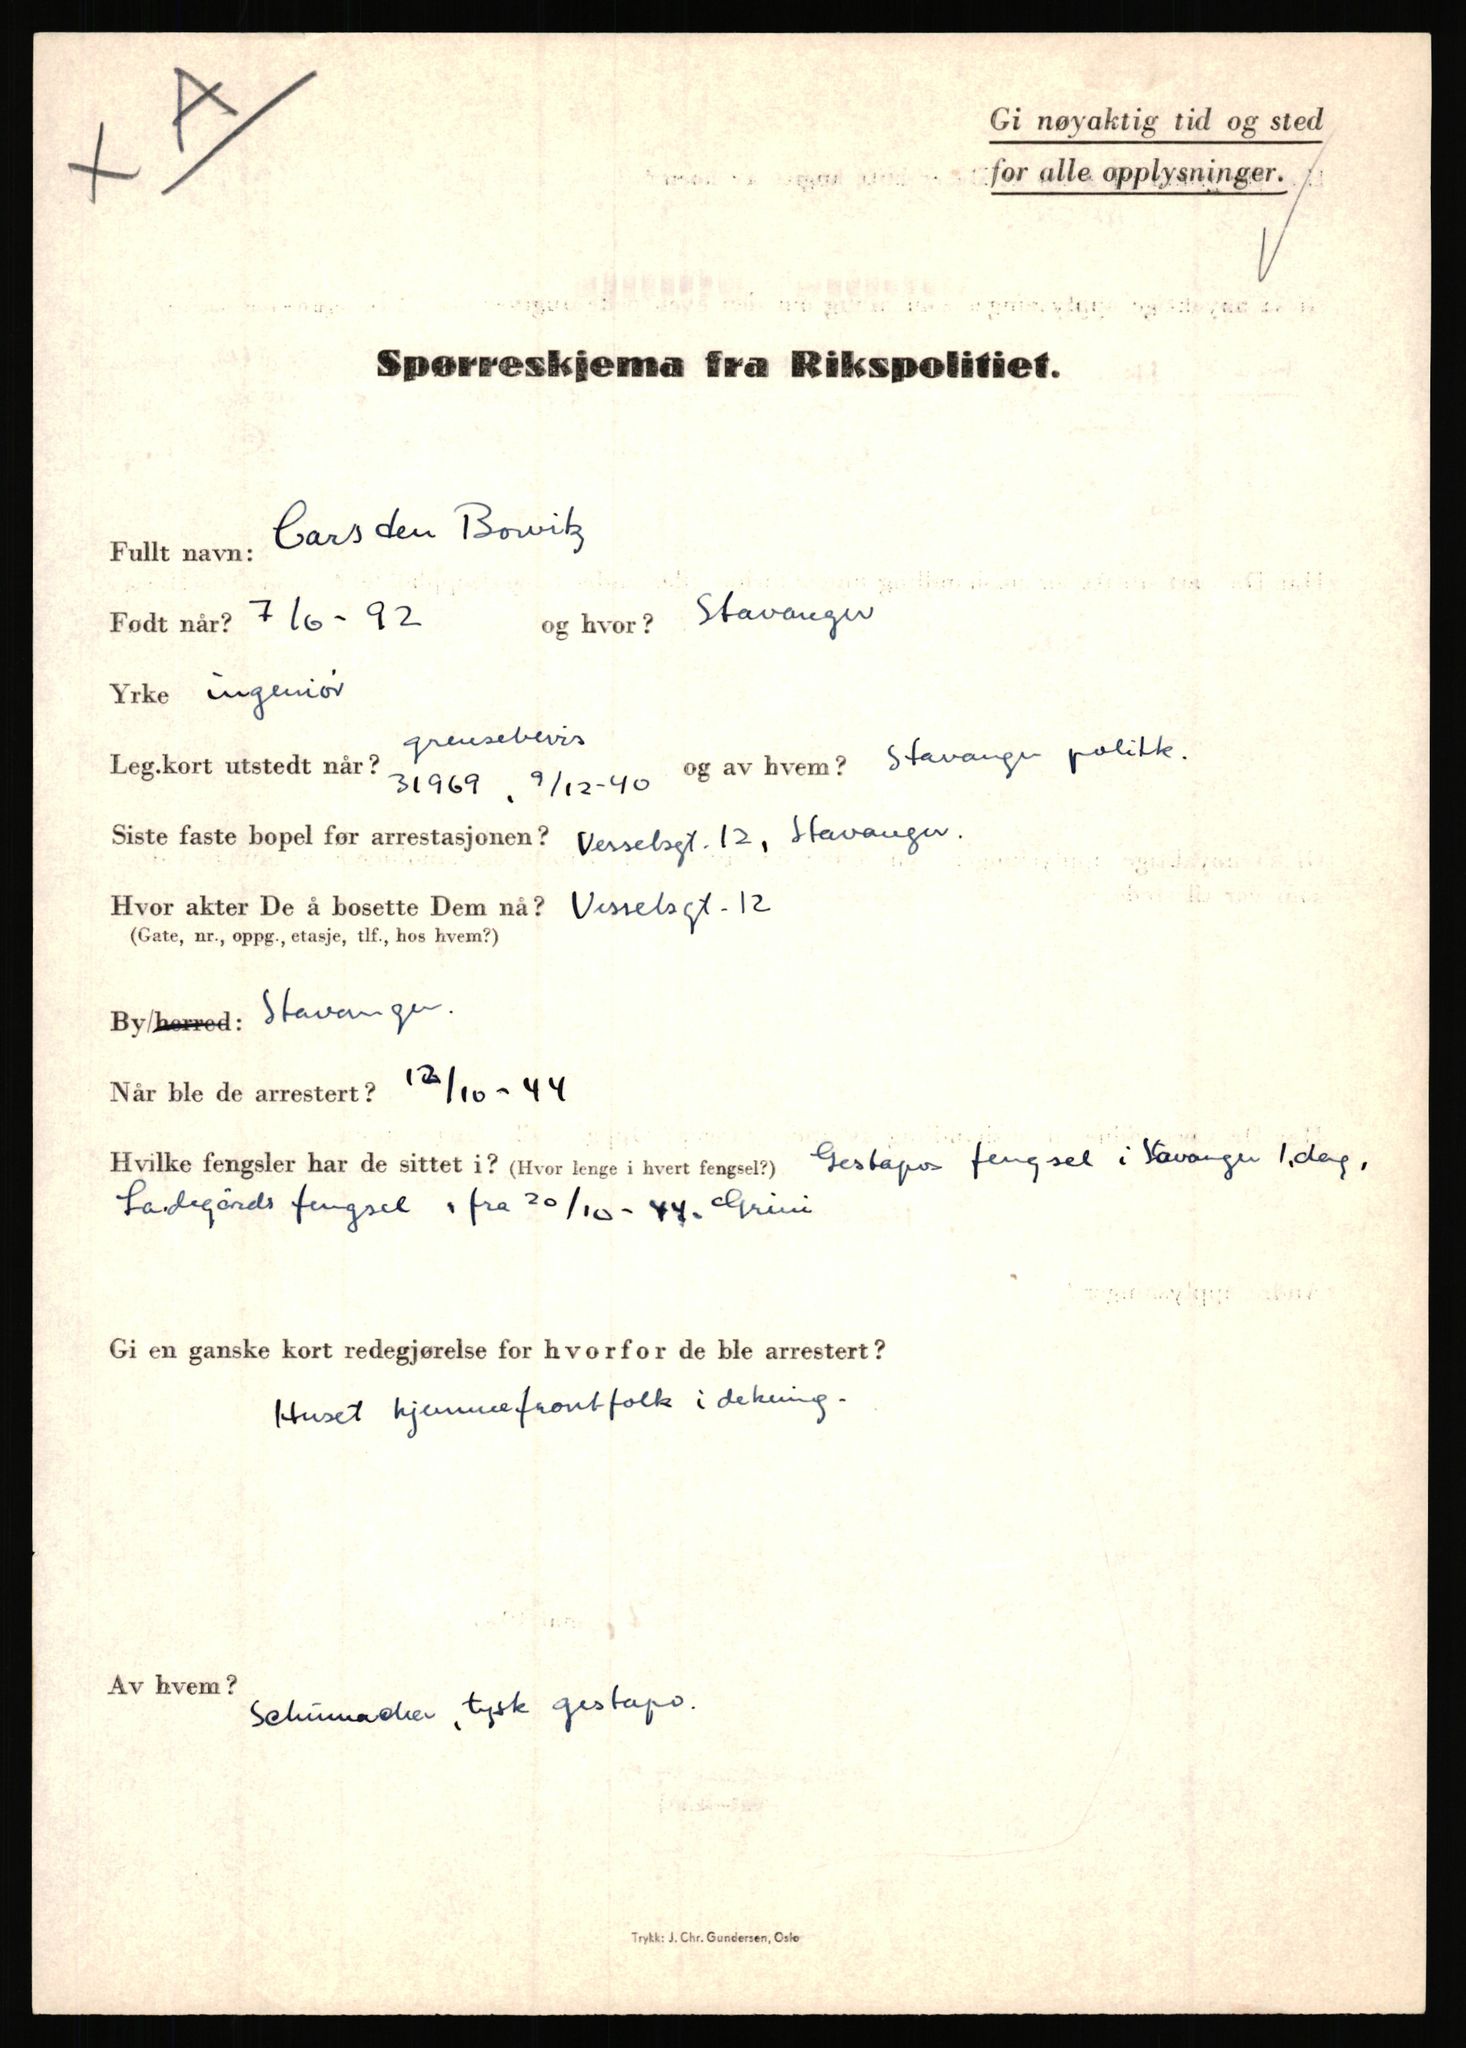 + A/
Gi nøyaktig tid og sted
for alle opplysninger.
Spørreskjema fra Rikspolitiet.
Fullt navn: Carsten Borwitz
Født når? 7/6 - 92 og hvor? Stavanger
Yrke ingeniør
grensebevis
Leg.kort utstedt når? 31969, 9/12-40 og av hvem? Stavanger politik.
Siste faste bopel før arrestasjonen? Vesselsgt. 12, Stavanger.
Hvor akter De å bosette Dem nå? Vesselsgt. 12
(Gate, nr., oppg., etasje, tlf., hos hvem?)
By/herred: Stavanger.
Når ble de arrestert? 12/10 - 44
Hvilke fengsler har de sittet i? (Hvor lenge i hvert fengsel?) Gestapos fengsel i Stavanger 1. dag,
Ladegårds fengsel, fra 20/10 - 44. Grini
Gi en ganske kort redegjørelse for hvorfor de ble arrestert?
Huset hjemmefrontfolk i dekning.
Av hvem? Schümacher, tysk gestapo.
Trykk: J. Chr. Gundersen, Oslo